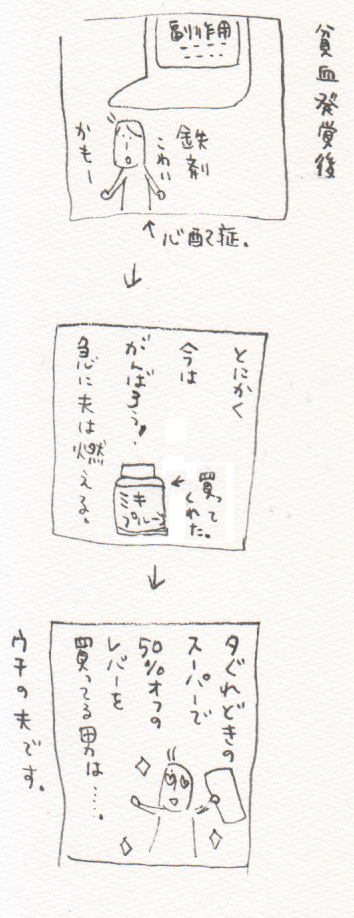 貧血発覚後
副作用
鉄剤
こわい
かもー
心配症。
とにかく
今は
がんばろう!
急に夫は燃える。
買って
くれた。
ミキ
プルーン
夕ぐれどきの
スーパーで
50%オフの
レバーを
買ってる男は……。
ウチの夫です。